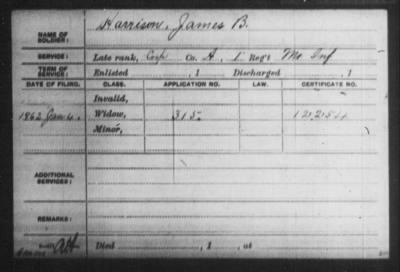 NAME OF SOLDIER: Harrison, James B.
SERVICE: Late rank, Corp Co. A, 1 Reg't Mo Inf
TERM OF SERVICE: Enlisted , 1 Discharged , 1
DATE OF FILING. CLASS. APPLICATION NO. LAW. CERTIFICATE NO.
Invalid,
1862 Jan 4. Widow, 315 121254
Minor,
ADDITIONAL SERVICES:
REMARKS:
Died , 1 , at